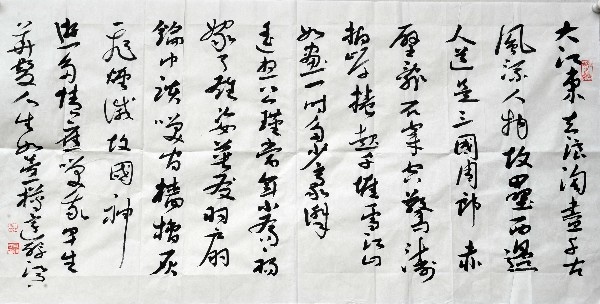 大江東去浪淘盡千古
風流人物故壘西邊
人道是三國周郎赤
壁亂石穿空驚濤
拍岸捲起千堆雪江山
如畫一時多少豪傑
遙想公瑾當年小喬初
嫁了雄姿英發羽扇
綸巾談笑間檣櫓灰
飛煙滅故國神
遊多情應笑我早生
華髮人生如夢一樽還酹江